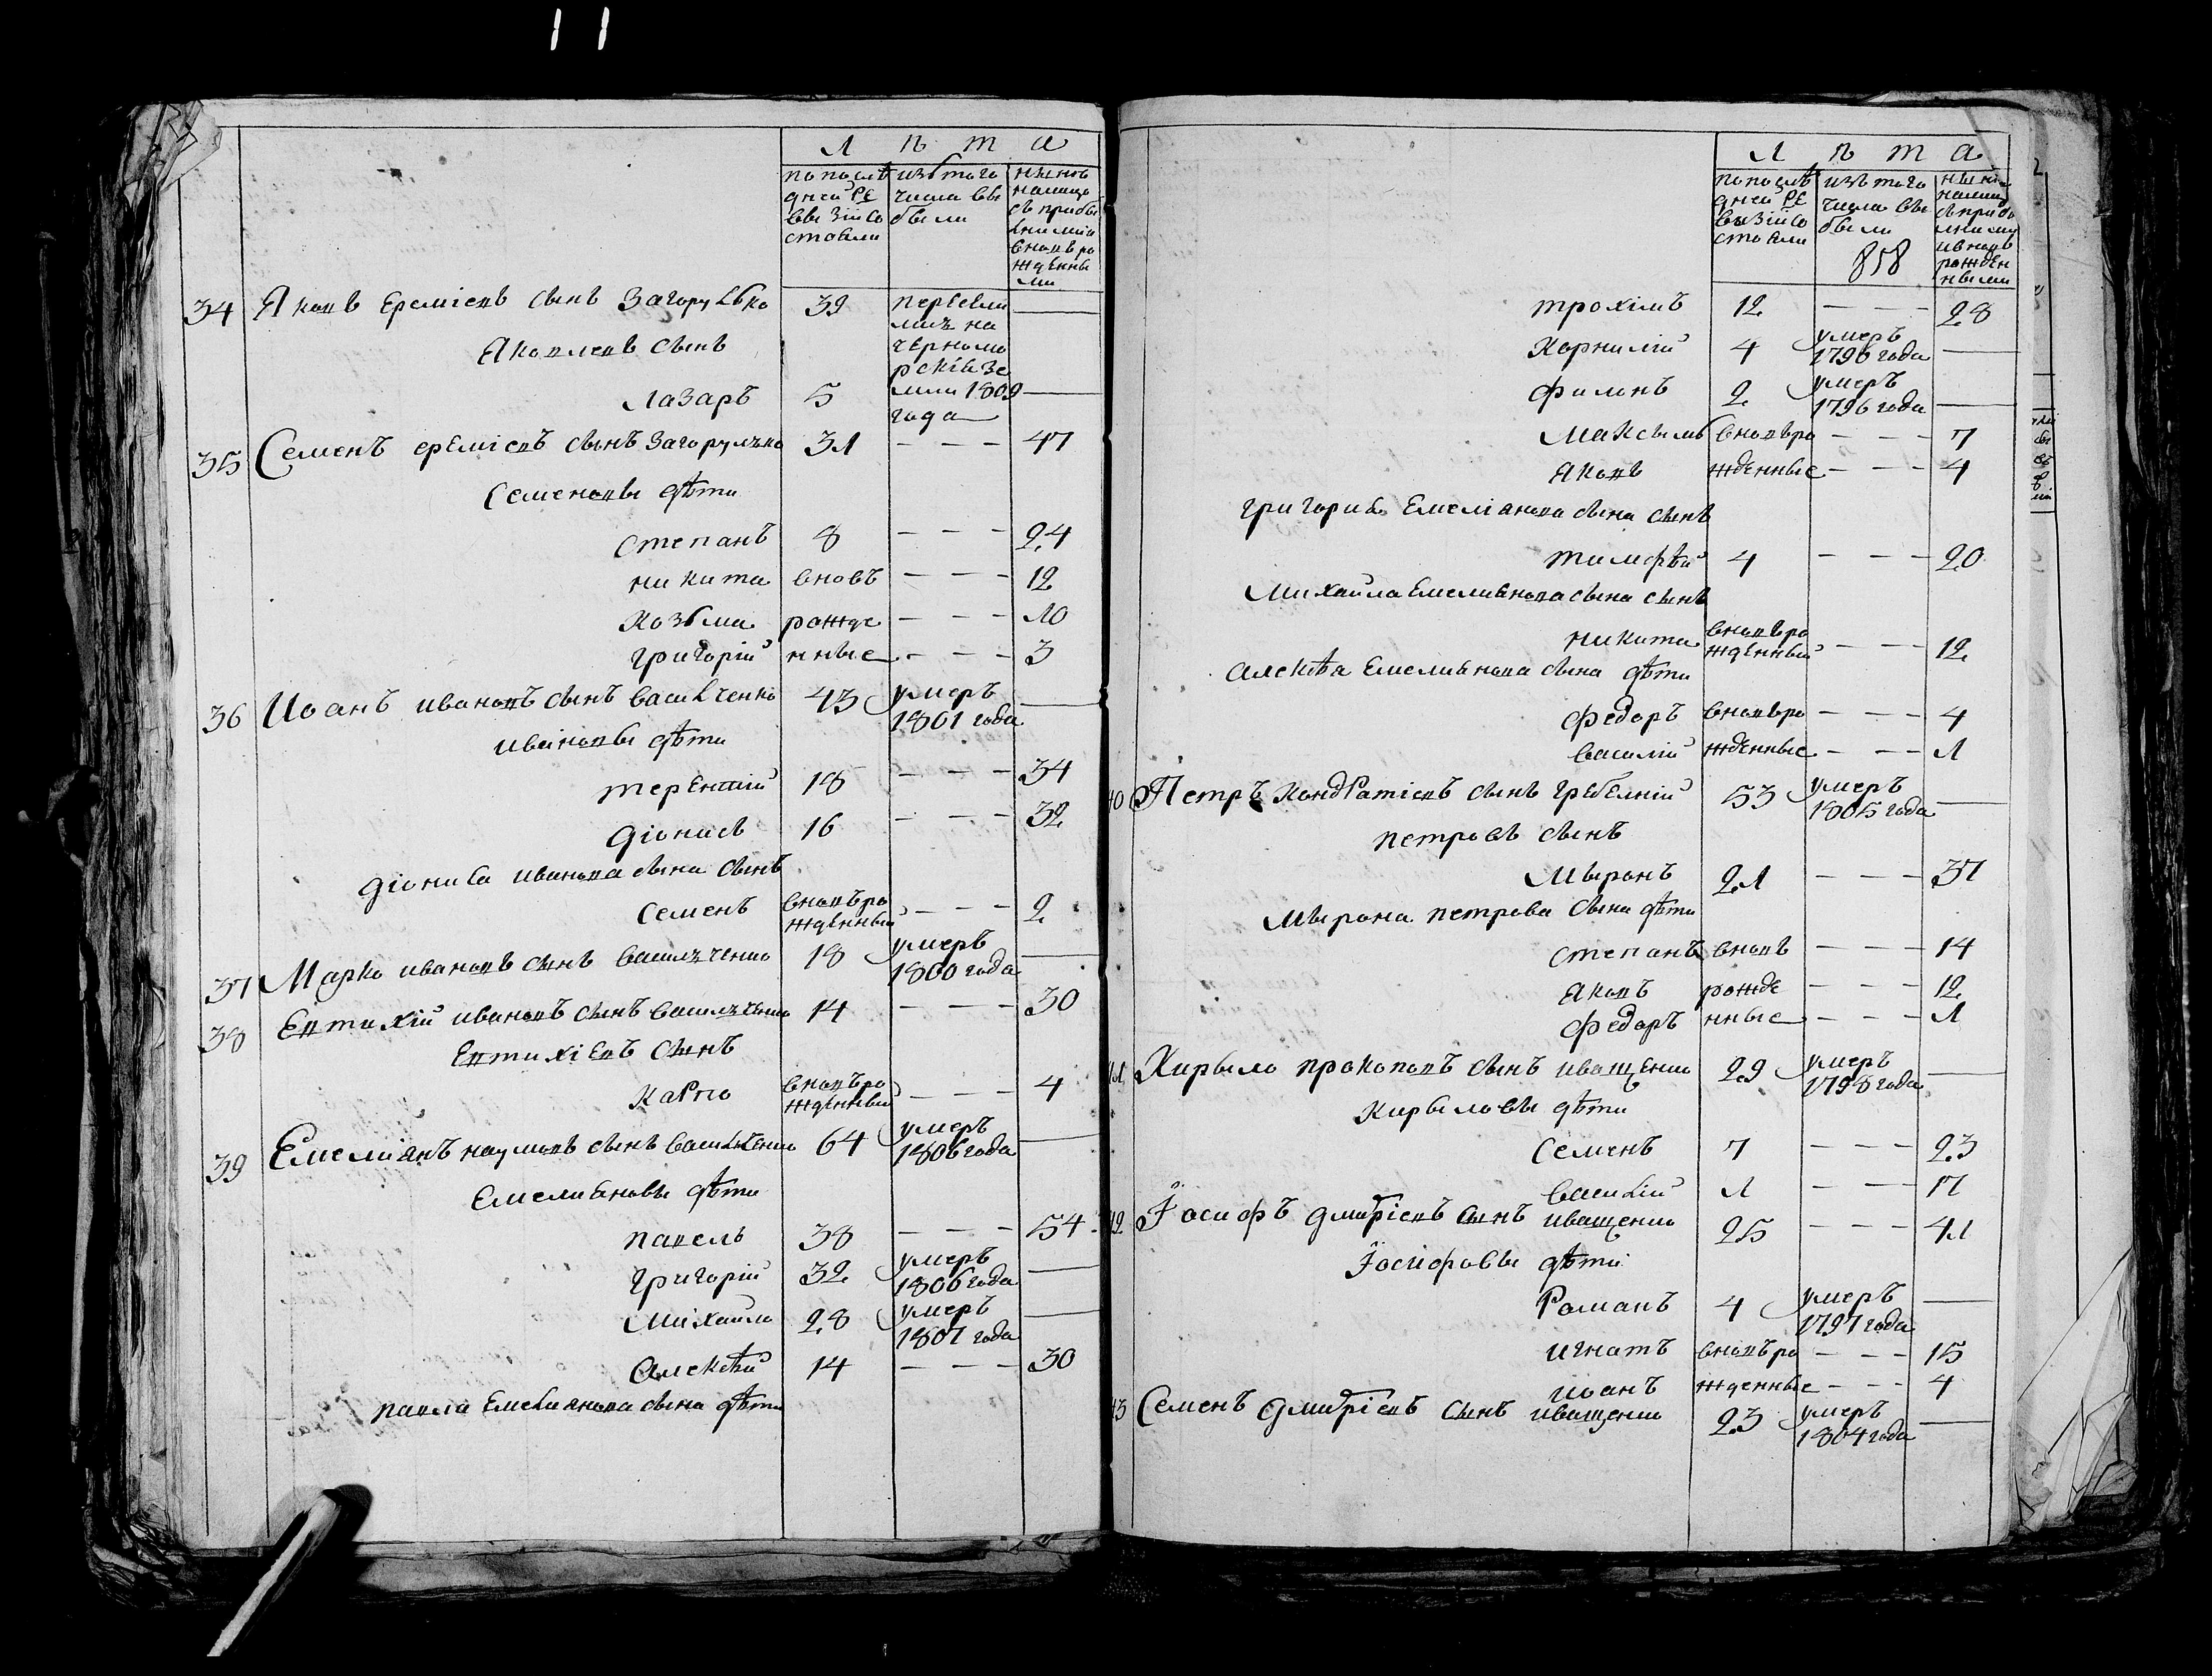 11
Л ѣ т а
по послѣ
дней РЕ
ввизіи со
стояли
изъ того
числа вы
были
нынѣ
налицо
съ прибы
лыми и
вновь ро
жденны
ми
34 Яковъ Ереміевъ сынъ Загорулько 39 переселился на черномо рскія зе мли 1809 года —
Яковлевъ сынъ
Лазарь 5 —
35 Семенъ ереміевъ сынъ Загорулько 31 — — — 47
Семеновы дѣти
степанъ 8 — — — 24
никита вновь — — — 12
Козьма рожде — — — 10
григорій нные — — — 3
36 Иоанъ ивановъ сынъ васильченко 43 умеръ 1801 года —
ивановы дѣти
терентій 18 — — — 34
діонисъ 16 — — — 32
діониса иванова сына сынъ
семенъ вновьро жденный — — — 2
37 Марко ивановъ сынъ васильченко 18 умеръ 1800 года —
38 Евтихій ивановъ сынъ васильченко 14 — — — 30
Евтихіевъ сынъ
карпо вновьро жденный — — — 4
39 Емеліянъ наумовъ сынъ васильченко 64 умеръ 1806 года —
Емелияновы дѣти
павелъ 38 — — — 54
григорій 32 умеръ 1806 года —
михайло 28 умеръ 1807 года —
алексѣй 14 — — — 30
павла Емелиянова сына дѣти
Л ѣ т а
по послѣ
дней РЕ
визіи со
стояли
изъ того
числа вы
были
858
нынѣ
налицо
съ прибы
лыми
и вновь
рожден
ными
трохімъ 12 — — — 28
Корнилій 4 умеръ 1796 года —
филонъ 2 умеръ 1796 года —
максымъ вновьро — — — 7
яковъ жденные — — — 4
григория Емеліянова сына сынъ
тимофѣй 4 — — — 20
михайла Емелиянова сына сынъ
никита вновьро жденный — — — 12
алексѣя Емелиянова сына дѣти
федоръ вновьро — — — 4
василій жденные — — — 1
40 Петръ Кондратіевъ сынъ гребенній 53 умеръ 1805 года —
петровъ сынъ
Мыронъ 21 — — — 37
мырона петрова сына дѣти
степанъ вновь — — — 14
яковъ рожде — — — 12
федоръ нные — — — 1
41 Кирыло прокоповъ сынъ иващенко 29 умеръ 1798 года —
кирыловы дѣти
семенъ 7 — — — 23
василій 1 — — — 17
42 Іосифъ дмитріевъ сынъ иващенко 25 — — — 41
Іосифовы дѣти
Романъ 4 умеръ 1797 года —
игнатъ вновьро — — — 15
иоанъ жденные — — — 4
43 Семенъ дмитріевъ сынъ иващенко 23 умеръ 1804 года —